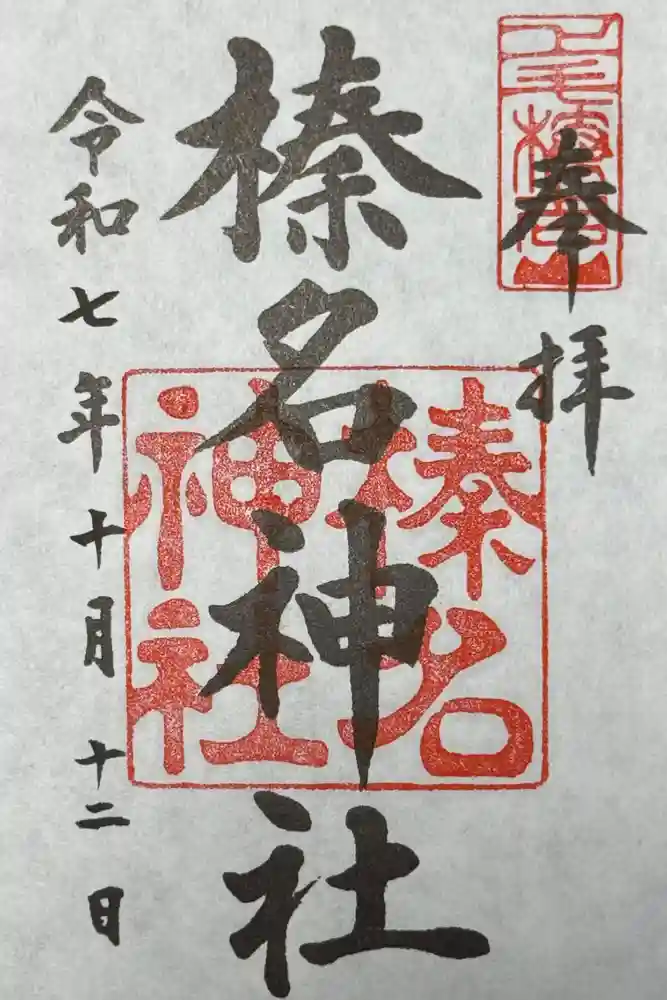 奉拝
榛名神社
令和七年十月十二日
榛名
神社